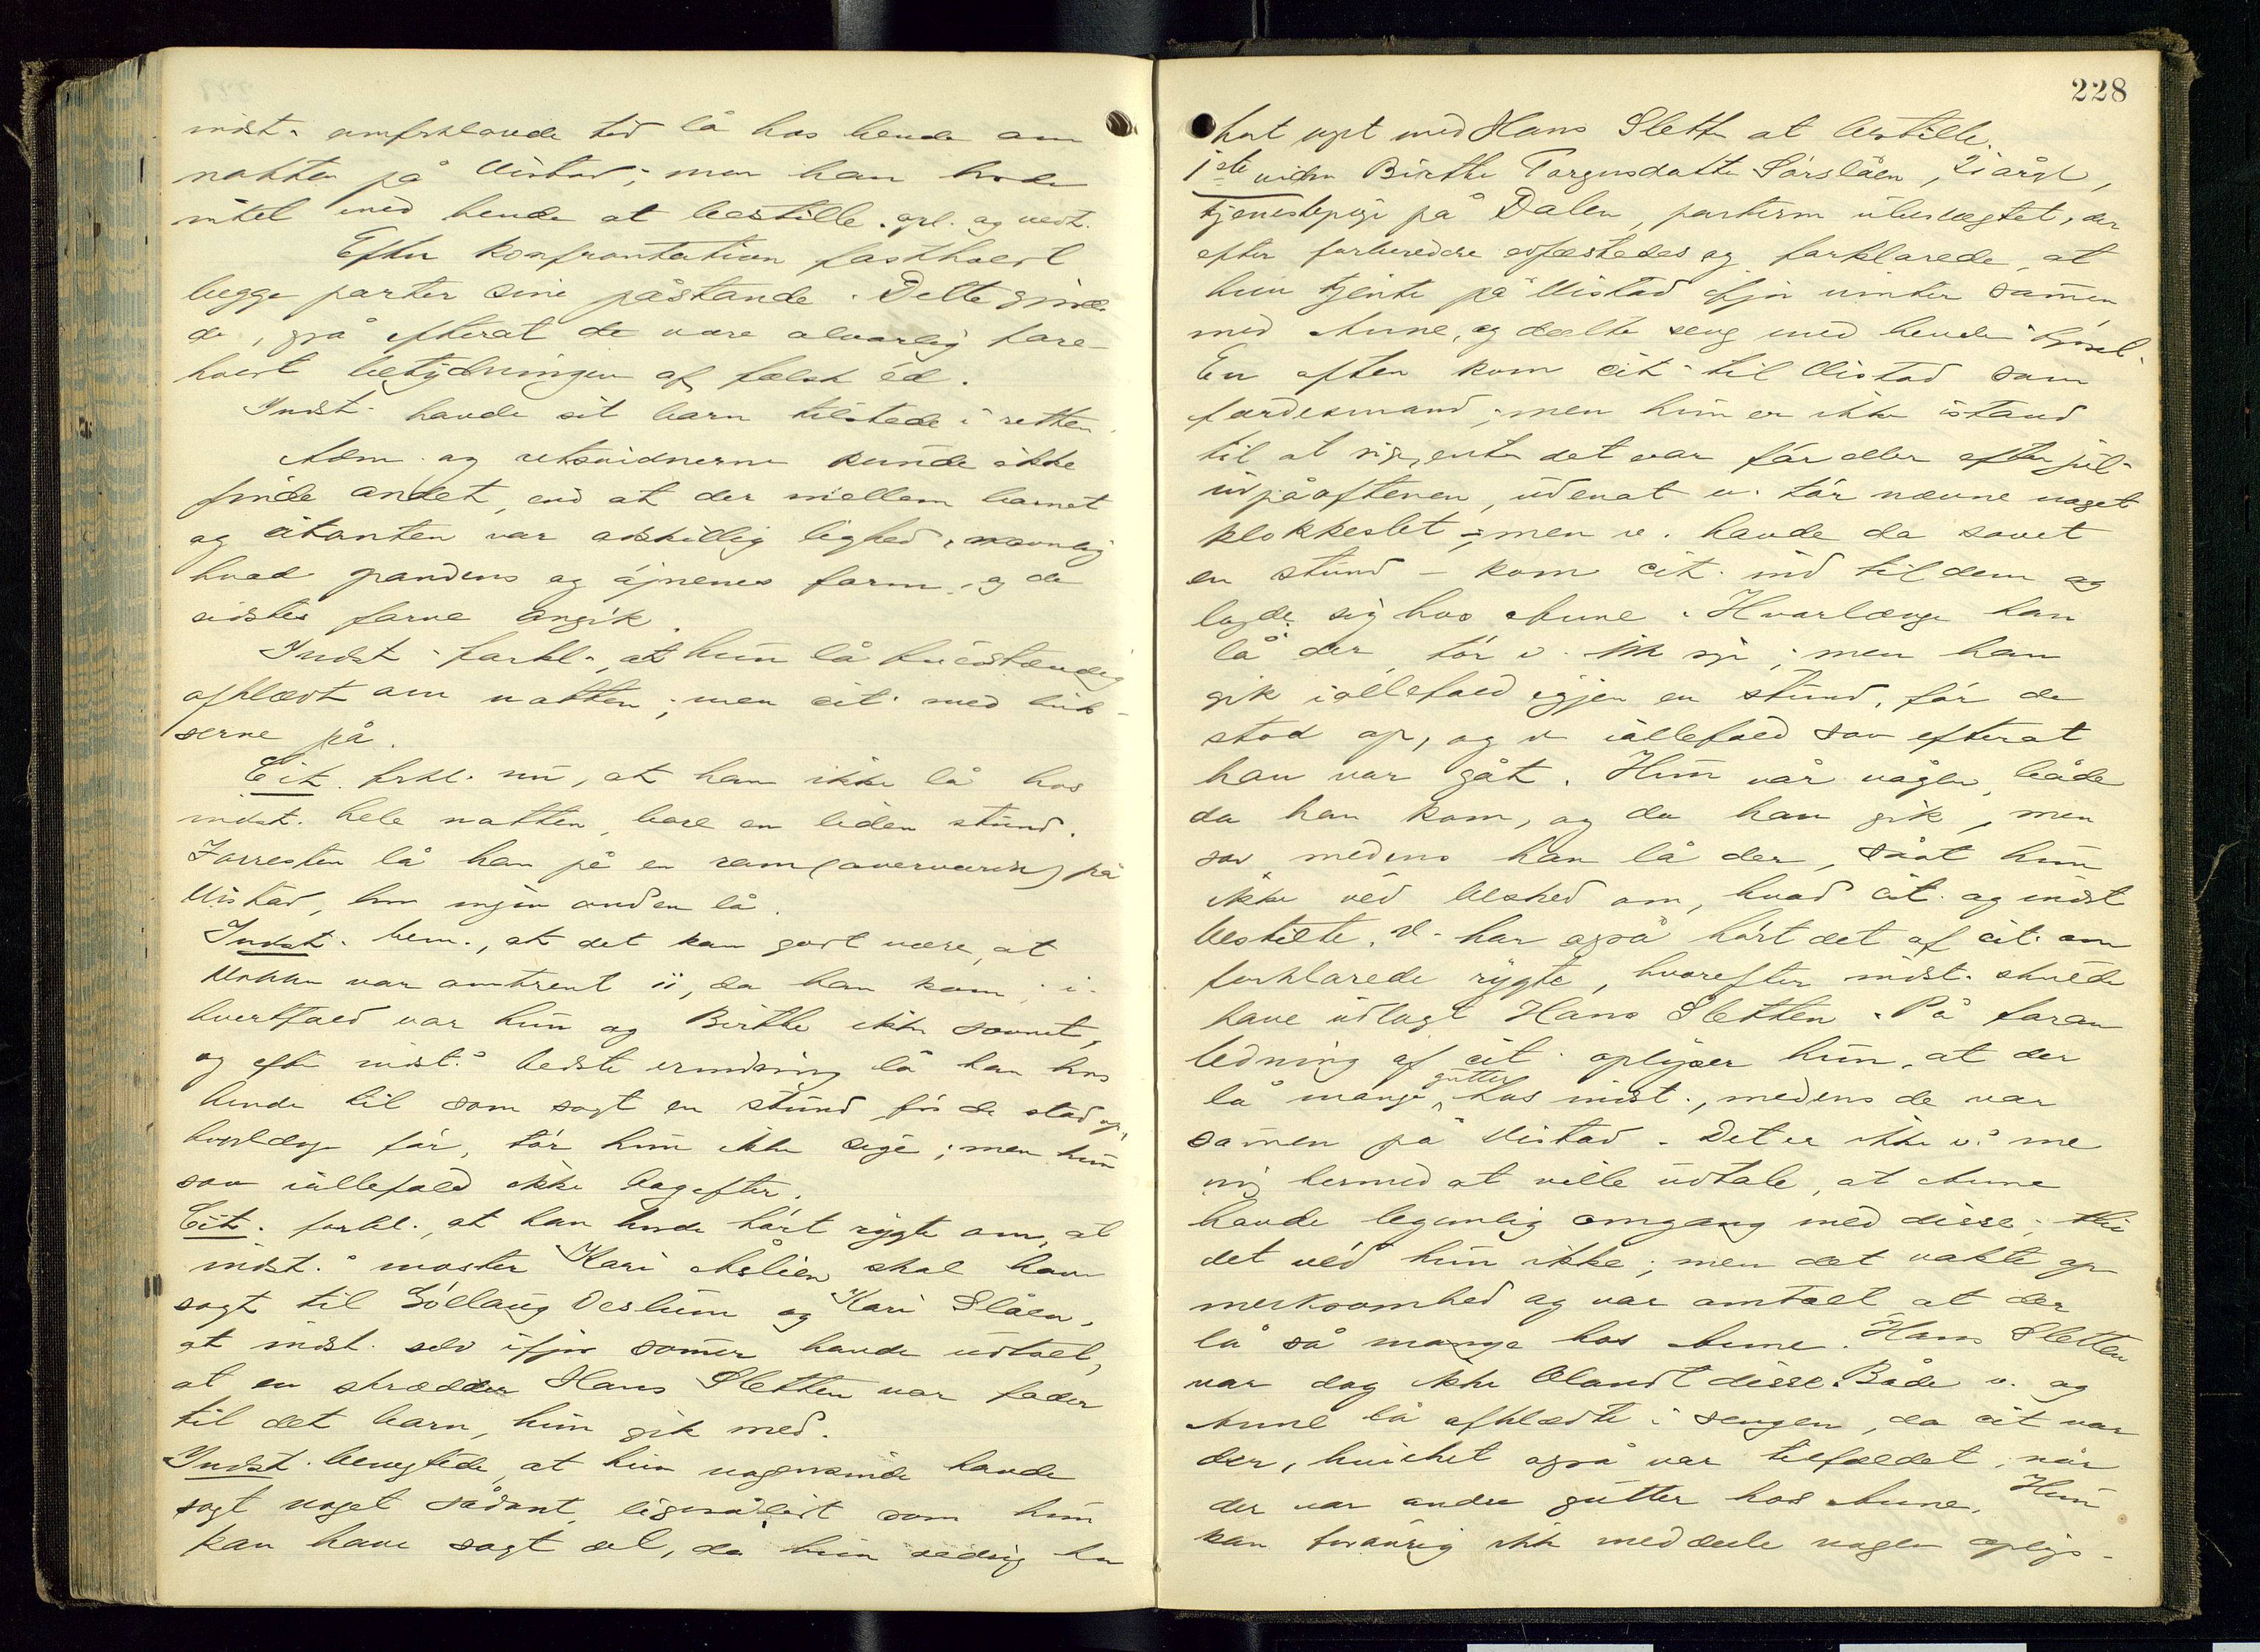 indst. omforklarede tid lå hos hende om
natten på Vistad; men han havde
intet med hende at bestille. opl. og vedt.
Efter konfrontation fastholdt
begge parter sine påstande. Dette gjorde
de, også efterat de vare alvorlig fore-
holdt betydningen af falsk éd.
Indst. havde sit barn tilstede i retten.
Adm. og retsvidnerne kunde ikke
finde andet, end at der mellem barnet
og citanten var adskillig lighed, navnlig
hvad pandens og øjnenes form, og de
sidstes farve angik.
Indst. forkl., at hun lå fuldstændig
afklædt om natten; men cit. med buk-
serne på.
Cit. forkl. nu, at han ikke lå hos
indst. hele natten, bare en liden stund.
Forresten lå han på en ram (overværelse) på
Vistad, hvor ingen anden lå.
Indst. bem., at det kan godt være, at
klokken var omtrent 11, da han kom; i
hvertfald var hun og Birthe ikke sovnet,
og efter indst.s bedste erindring lå han hos
hende til som sagt en stund før de stod op,
hvorlænge før, tør hun ikke sige; men hun
sov iallefald ikke bagefter.
Cit. forkl., at han havde hørt rygte om, at
indst.s moster Kari Åslien skal have
sagt til Gøllaug Veslum og Kari Slåen,
at indst. selv ifjor sommer havde udtalt,
at en skrædder Hans Sletten var fader
til det barn, hun gik med.
Indst. benegtede, at hun nogensinde havde
sagt noget sådant, ligesålidt som hun
kan have sagt det, da hun aldrig har
228
havt nogt med Hans Sletten at bestille.
1ste vidne Birthe Torgersdatter Sørslåen, 21 årgl.,
tjenestepige på Dalen, parterne ubeslægtet, der
efter forberedelse edfæstedes og forklarede, at
hun tjente på Vistad ifjor vinter sammen
med Anne, og delte seng med hende i fjøset.
En aften kom cit. til Vistad som
færdesmand; men hun er ikke istand
til at sige, enten det var før eller efter jul.
Udpåaftenen, udenat v. tør nævne noget
klokkeslet; men v. havde da sovet
en stund – kom cit. ind til dem og
lagde sig hos Anne. Hvorlænge han
lå der, tør v. ikke sige; men han
gik iallefald igjen en stund, før de
stod op, og v. iallefald sov efterat
han var gåt. Hun var vågen, både
da han kom, og da han gik, men
sov medens han lå der, såat hun
ikke véd besked om, hvad cit. og indst.
bestilte. V. har også hørt det af cit. om-
forklarede rygte, hvorefter indst. skulde
have udlagt Hans Sletten. På foran-
ledning af cit. oplyser hun, at der
lå mange gutter hos indst., medens de var
sammen på Vistad. Det er ikke v.s me-
ning hermed at ville udtale, at Anne
havde legemlig omgang med disse; thi
det véd hun ikke; men det vakte op-
merksomhed og var omtalt, at der
lå så mange hos Anne. Hans Sletten
var dog ikke blandt disse. Både v. og
Anne lå afklædte i sengen, da cit. var
der, hvilket også var tilfældet, når
der var andre gutter hos Anne. Hun
kan forøvrig ikke meddele nogen oplys-